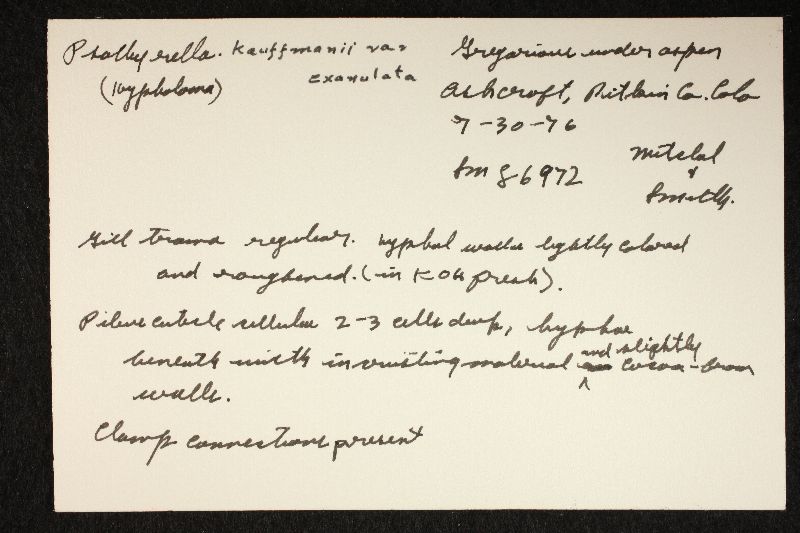 Psathyrella. Kauffmanii var
exanulata
(Hypholoma)
Gregarious under aspen
Ashcroft, Pitkin Co. Colo
7-30-76
Sm 86972
Mitchel
&
Smith.
Gill trama regular. Hyphal walls lightly colored
and roughened. (in KOH fresh).
Pileus cuticle cellular 2-3 cells deep, hyphae
beneath with incrusting material and slightly cocoa-brown
walls.
Clamp connections present